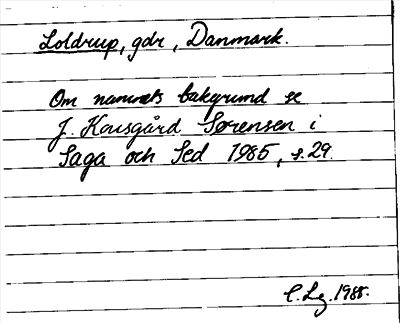 Loldrup, gdr, Danmark.
Om namnets bakgrund se
J. Kousgård Sørensen i
Saga och Sed 1985, s. 29.
C. Lg. 1988.